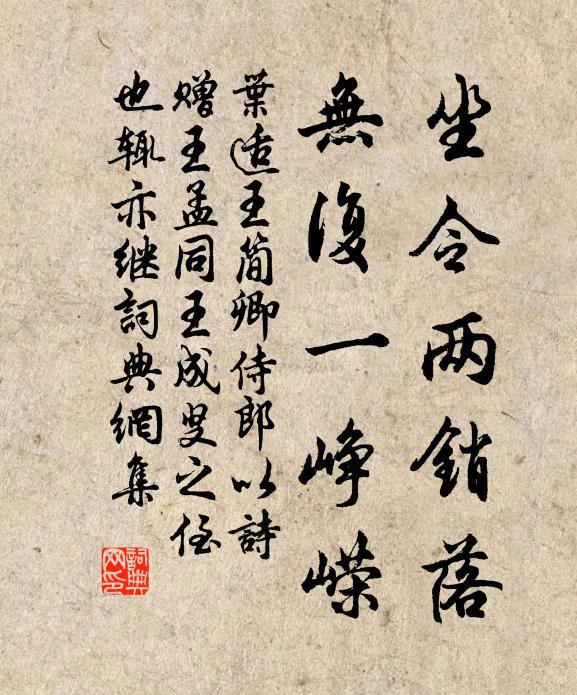 坐令两銷落
無復一崢嶸
葉适王簡卿侍郎以詩
贈王孟同王成叟之侄
也輒亦继詞典網集
詞典网印